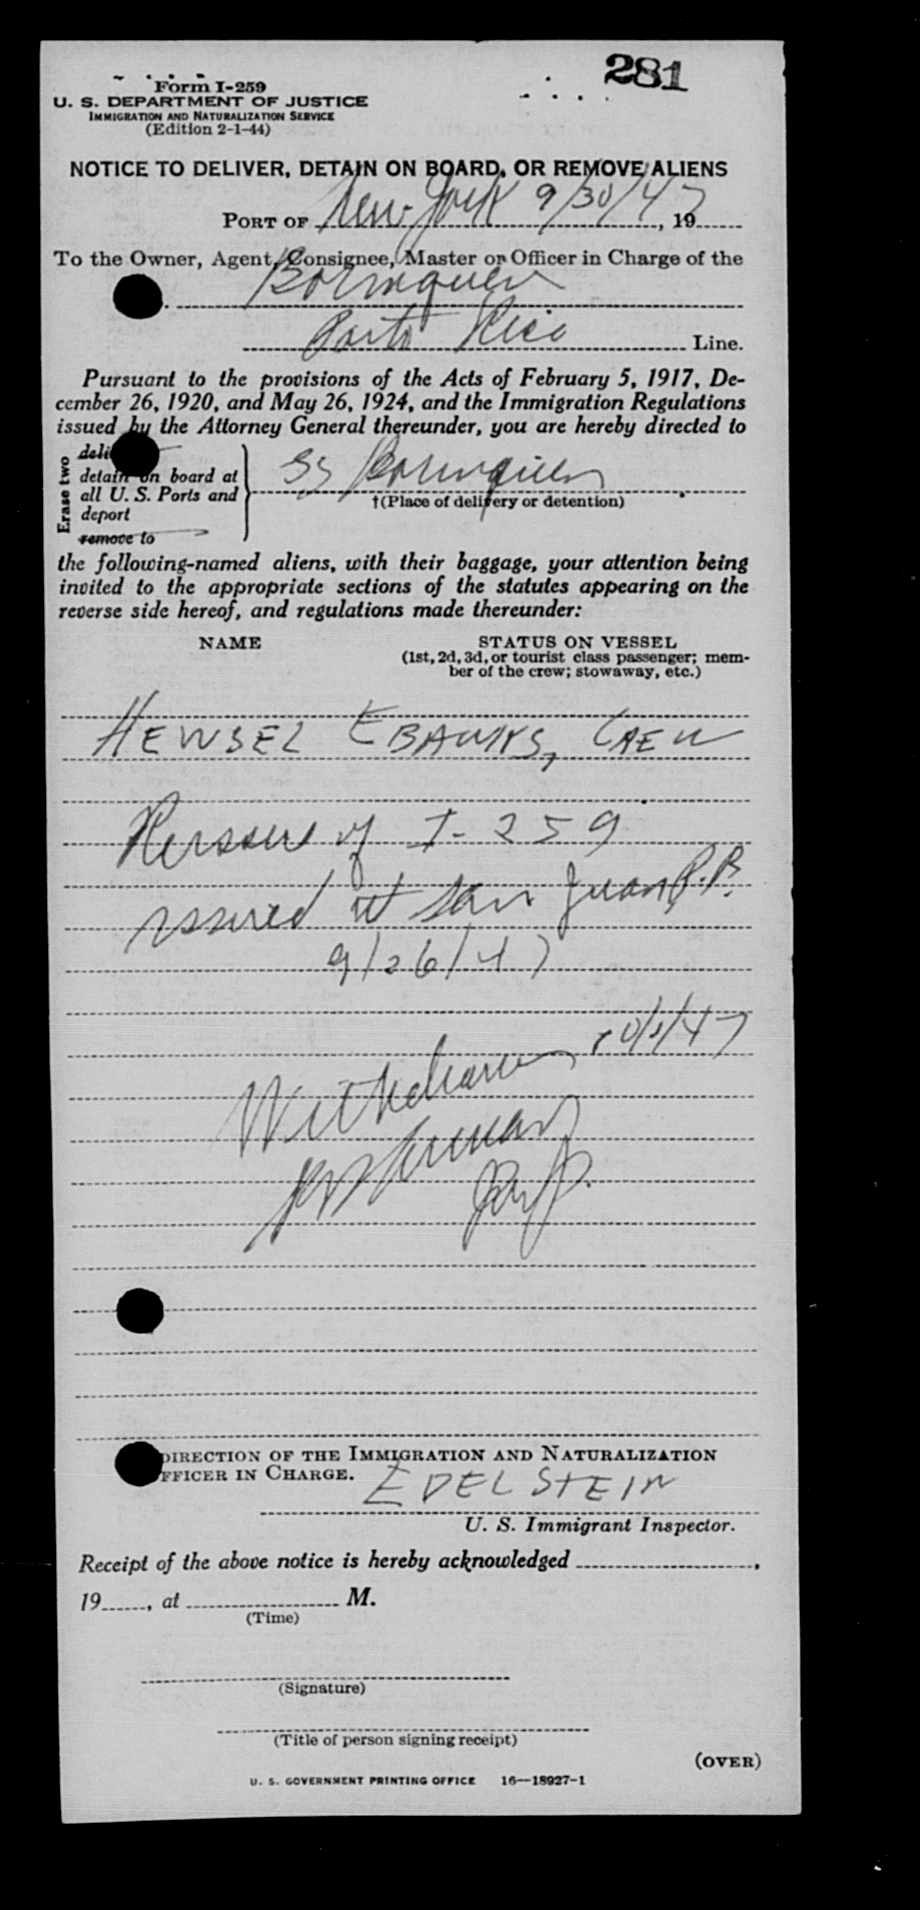 281
Form I-259
U. S. DEPARTMENT OF JUSTICE
IMMIGRATION AND NATURALIZATION SERVICE
(Edition 2-1-44)
NOTICE TO DELIVER, DETAIN ON BOARD, OR REMOVE ALIENS
PORT OF New York 9/30/47, 19
To the Owner, Agent, Consignee, Master or Officer in Charge of the
Borinquen
Porto Rico Line.
Pursuant to the provisions of the Acts of February 5, 1917, De-
cember 26, 1920, and May 26, 1924, and the Immigration Regulations
issued by the Attorney General thereunder, you are hereby directed to
Erase two
deli
detain on board at
all U. S. Ports and
deport
remove to
SS Borinquen
†(Place of delivery or detention)
the following-named aliens, with their baggage, your attention being
invited to the appropriate sections of the statutes appearing on the
reverse side hereof, and regulations made thereunder:
NAME STATUS ON VESSEL
(1st, 2d, 3d, or tourist class passenger; mem-
ber of the crew; stowaway, etc.)
HENSEL EBANKS, CREW
Reissue of I-259
issued at San Juan P.R.
9/26/47
Withdrawn 10/1/47
DIRECTION OF THE IMMIGRATION AND NATURALIZATION
FFICER IN CHARGE.
EDELSTEIN
U. S. Immigrant Inspector.
Receipt of the above notice is hereby acknowledged ,
19 , at M.
(Time)
(Signature)
(Title of person signing receipt)
(OVER)
U. S. GOVERNMENT PRINTING OFFICE 16—18927-1